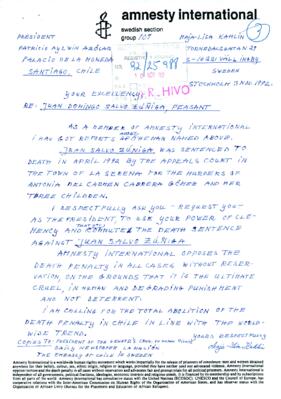 amnesty international
swedish section
group 107
PRESIDENT
PATRICIO AYLWIN AZÓCAR
PALACIO DE LA MONEDA
SANTIAGO, CHILE
MAJA-LISA KAHLIN
SWEDEN
STOCKHOLM 3 NOV. 1992.
92/25988
ARCHIVO
3
YOUR EXCELLENCY,
RE: JUAN DOMINGO SALVO ZÚÑIGA, PEASANT
AS A MEMBER OF AMNESTY INTERNATIONAL
I HAVE GOT REPORTS OF THE MAN NAMED ABOVE.
JUAN SALVO ZÚÑIGA, WAS SENTENCED TO
DEATH IN APRIL 1992 BY THE APPEALS COURT IN
THE TOWN OF LA SERENA FOR THE MURDERS OF
ANTONIA DEL CARMEN CABRERA AND HER
THREE CHILDREN.
I RESPECTFULLY ASK YOU - REQUEST YOU
AS THE PRESIDENT, TO USE YOUR POWER OF CLE-
MENCY AND COMMUTE THE DEATH SENTENCE
AGAINST JUAN SALVO ZÚÑIGA
AMNESTY INTERNATIONAL OPPOSES THE
DEATH PENALTY IN ALL CASES WITHOUT RESER-
VATION, ON THE GROUNDS THAT IT IS THE ULTIMATE
CRUEL, INHUMAN AND DEGRADING PUNISHMENT
AND NOT DETERRENT.
I AM CALLING FOR THE TOTAL ABOLITION OF THE
DEATH PENALTY IN CHILE IN LINE WITH THE WORLD-
WIDE TREND.
YOURS RESPECTFULLY
COPIES TO: PRESIDENT OF THE SENATE'S
DAILY NEWSPAPER LA NACIÓN
THE EMBASSY OF CHILE IN SWEDEN
Amnesty International is a worldwide human rights movement which works impartially for the release of prisoners of conscience: men and women detained
anywhere for their beliefs, colour, sex, ethnic origin, language or religion, provided they have neither used nor advocated violence. Amnesty International
opposes torture and the death penalty in all cases without reservation and advocates fair and prompt trials for all political prisoners. Amnesty International is
independent of all governments, political factions, ideologies, economic interests and religious creeds. It is financed by its membership and by subscriptions
from all parts of the world. Amnesty International has consultative status with the United Nations (ECOSOC), UNESCO and the Council of Europe, has
cooperative relations with the Inter-American Commission on Human Rights of the Organization of American States, and has observer status with the
Organization of African Unity (Bureau for the Placement and Education of African Refugees).